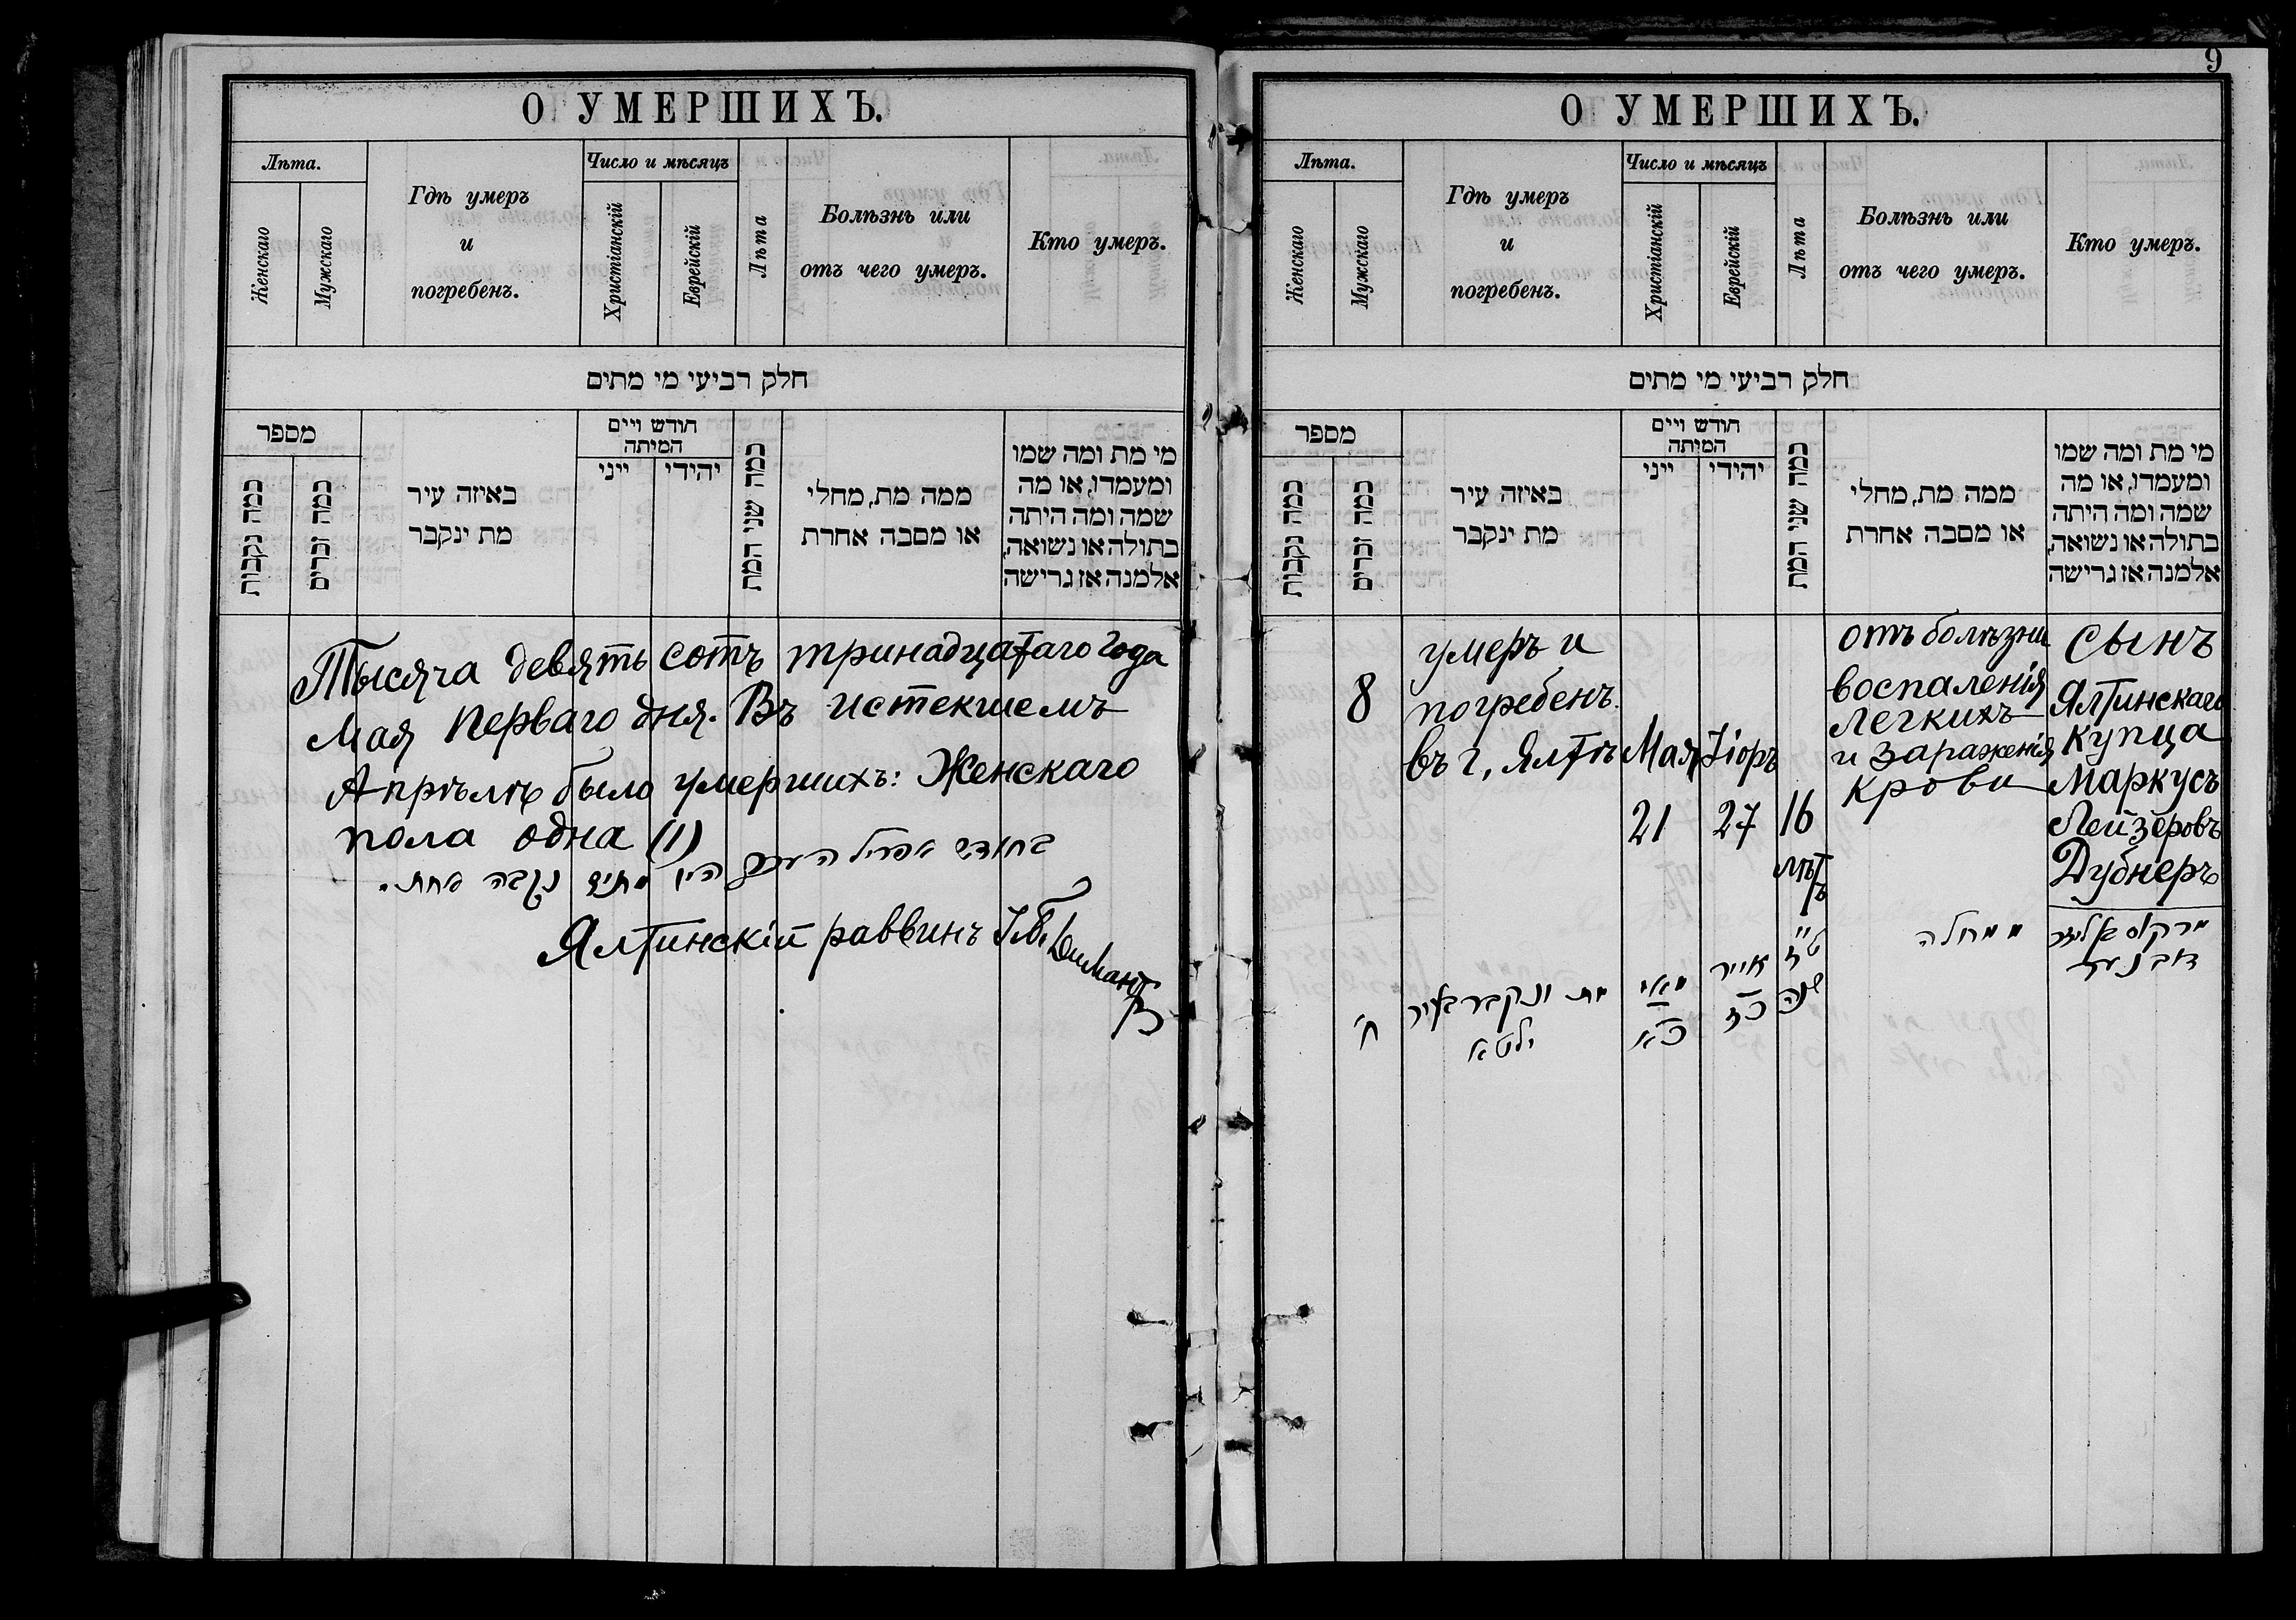 О УМЕРШИХЪ.
Лѣта.
Женскаго
Мужскаго
Гдѣ умеръ
и
погребенъ.
Число и мѣсяцъ
Христіанскій
Еврейскій
Лѣта
Болѣзнь или
отъ чего умеръ.
Кто умеръ.
חלק רביעי מי מתים
מספר
כמה נקבות
כמה זכרים
באיזה עיר
מת ינקבר
חודש ויים
המיתה
ייני
יהידי
כמה שני המת
ממה מת, מחלי
או מסבה אחרת
מי מת ומה שמו
ומעמדו, או מה
שמה ומה היתה
בתולה או נשואה,
אלמנה אז גרישה
Тысяча девять сотъ тринадцатаго года
Мая перваго дня. Въ истекшемъ
Апрѣлѣ было умершихъ: Женскаго
пола одна (1)
בחודש אפריל העבר היו מתים נקבה אחת.
Ялтинскій раввинъ
9
О УМЕРШИХЪ.
Лѣта.
Женскаго
Мужскаго
Гдѣ умеръ
и
погребенъ.
Число и мѣсяцъ
Христіанскій
Еврейскій
Лѣта
Болѣзнь или
отъ чего умеръ.
Кто умеръ.
חלק רביעי מי מתים
מספר
כמה נקבות
כמה זכרים
באיזה עיר
מת ינקבר
חודש ויים
המיתה
ייני
יהידי
כמה שני המת
ממה מת, מחלי
או מסבה אחרת
מי מת ומה שמו
ומעמדו, או מה
שמה ומה היתה
בתולה או נשואה,
אלמנה אז גרישה
8
умеръ и
погребенъ
въ г. Ялтѣ
Мая
21
Іоръ
27
16
лѣтъ
отъ болѣзни
воспаленія
легкихъ
и зараженія
крови
сынъ
Ялтинскаго
купца
Маркусъ
Лейзеровъ
Дубнеръ
ח'
מת ונקבר בעיר
ילטא
מאי
כא
אייר
כז
ט"ז
שנה
ממחלה
מרקוס אליעזר
דובנער